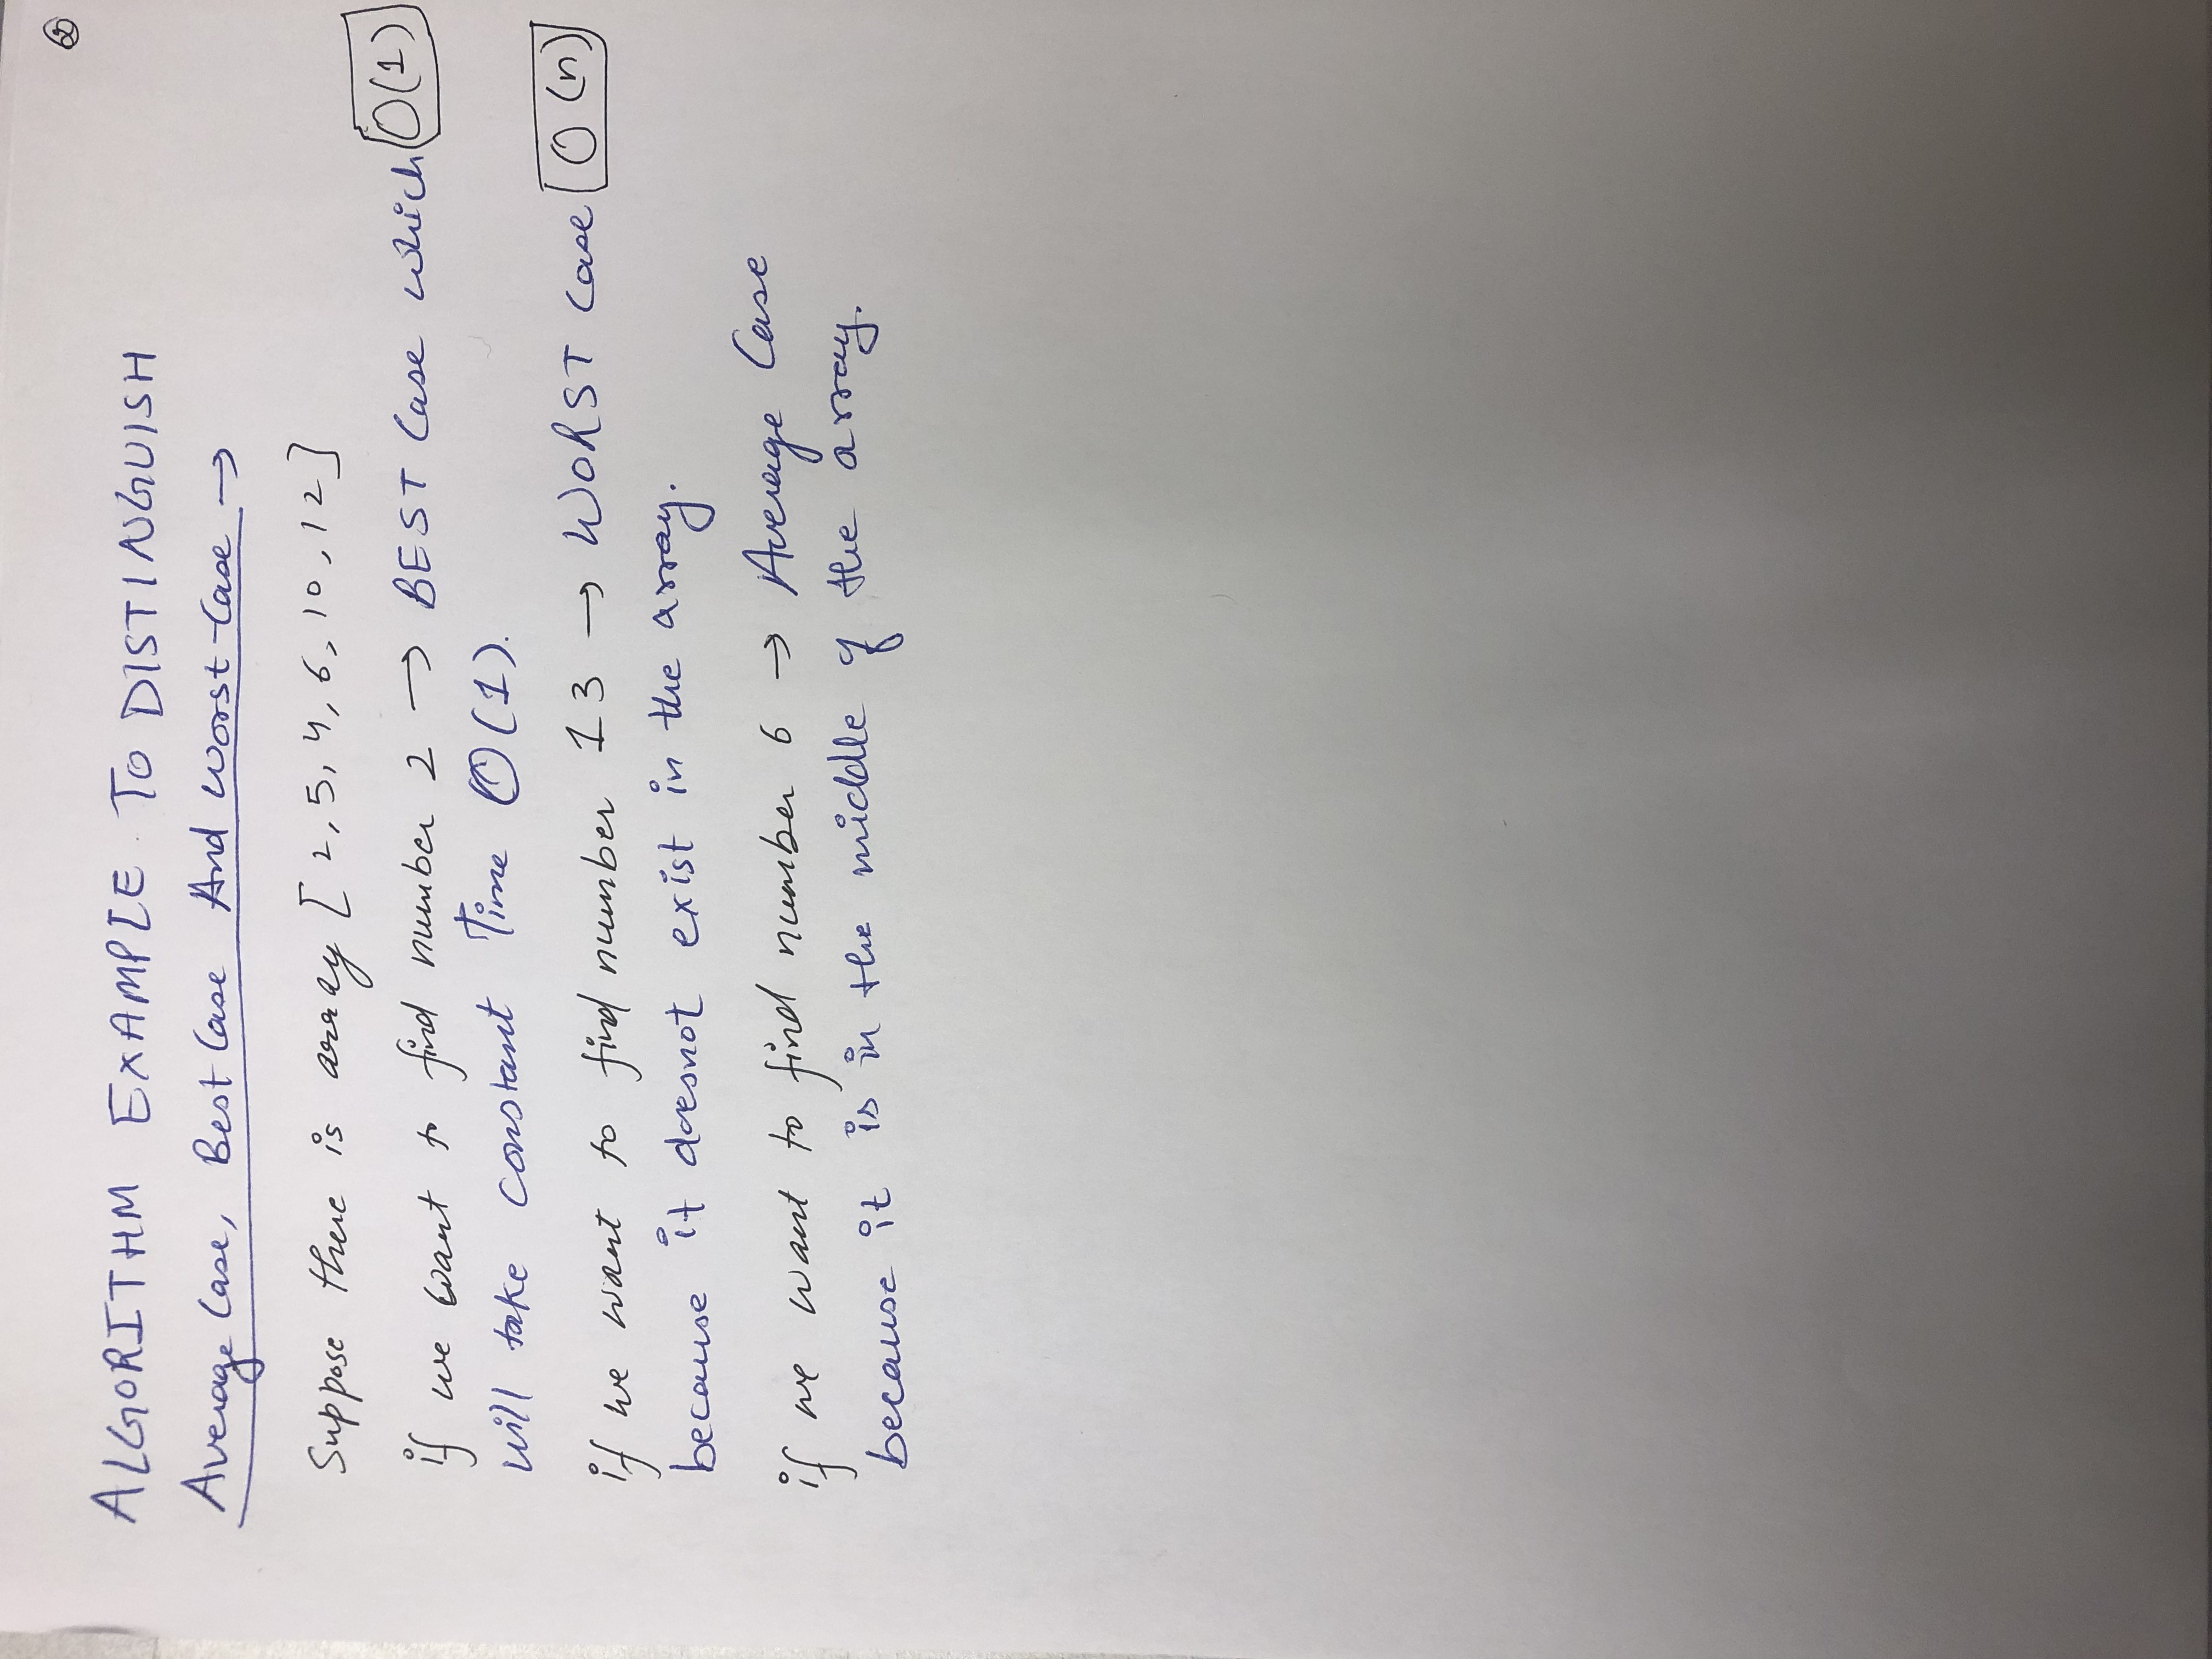 ②
ALGORITHM EXAMPLE TO DISTINGUISH
Average Case, Best Case And Worst-Case →
Suppose there is array [2, 5, 4, 6, 10, 12]
if we want to find number 2 → BEST Case which O(1)
will take constant Time O(1).
if we want to find number 13 → WORST Case O(n)
because it doesnot exist in the array.
if we want to find number 6 → Average Case
because it is in the middle of the array.